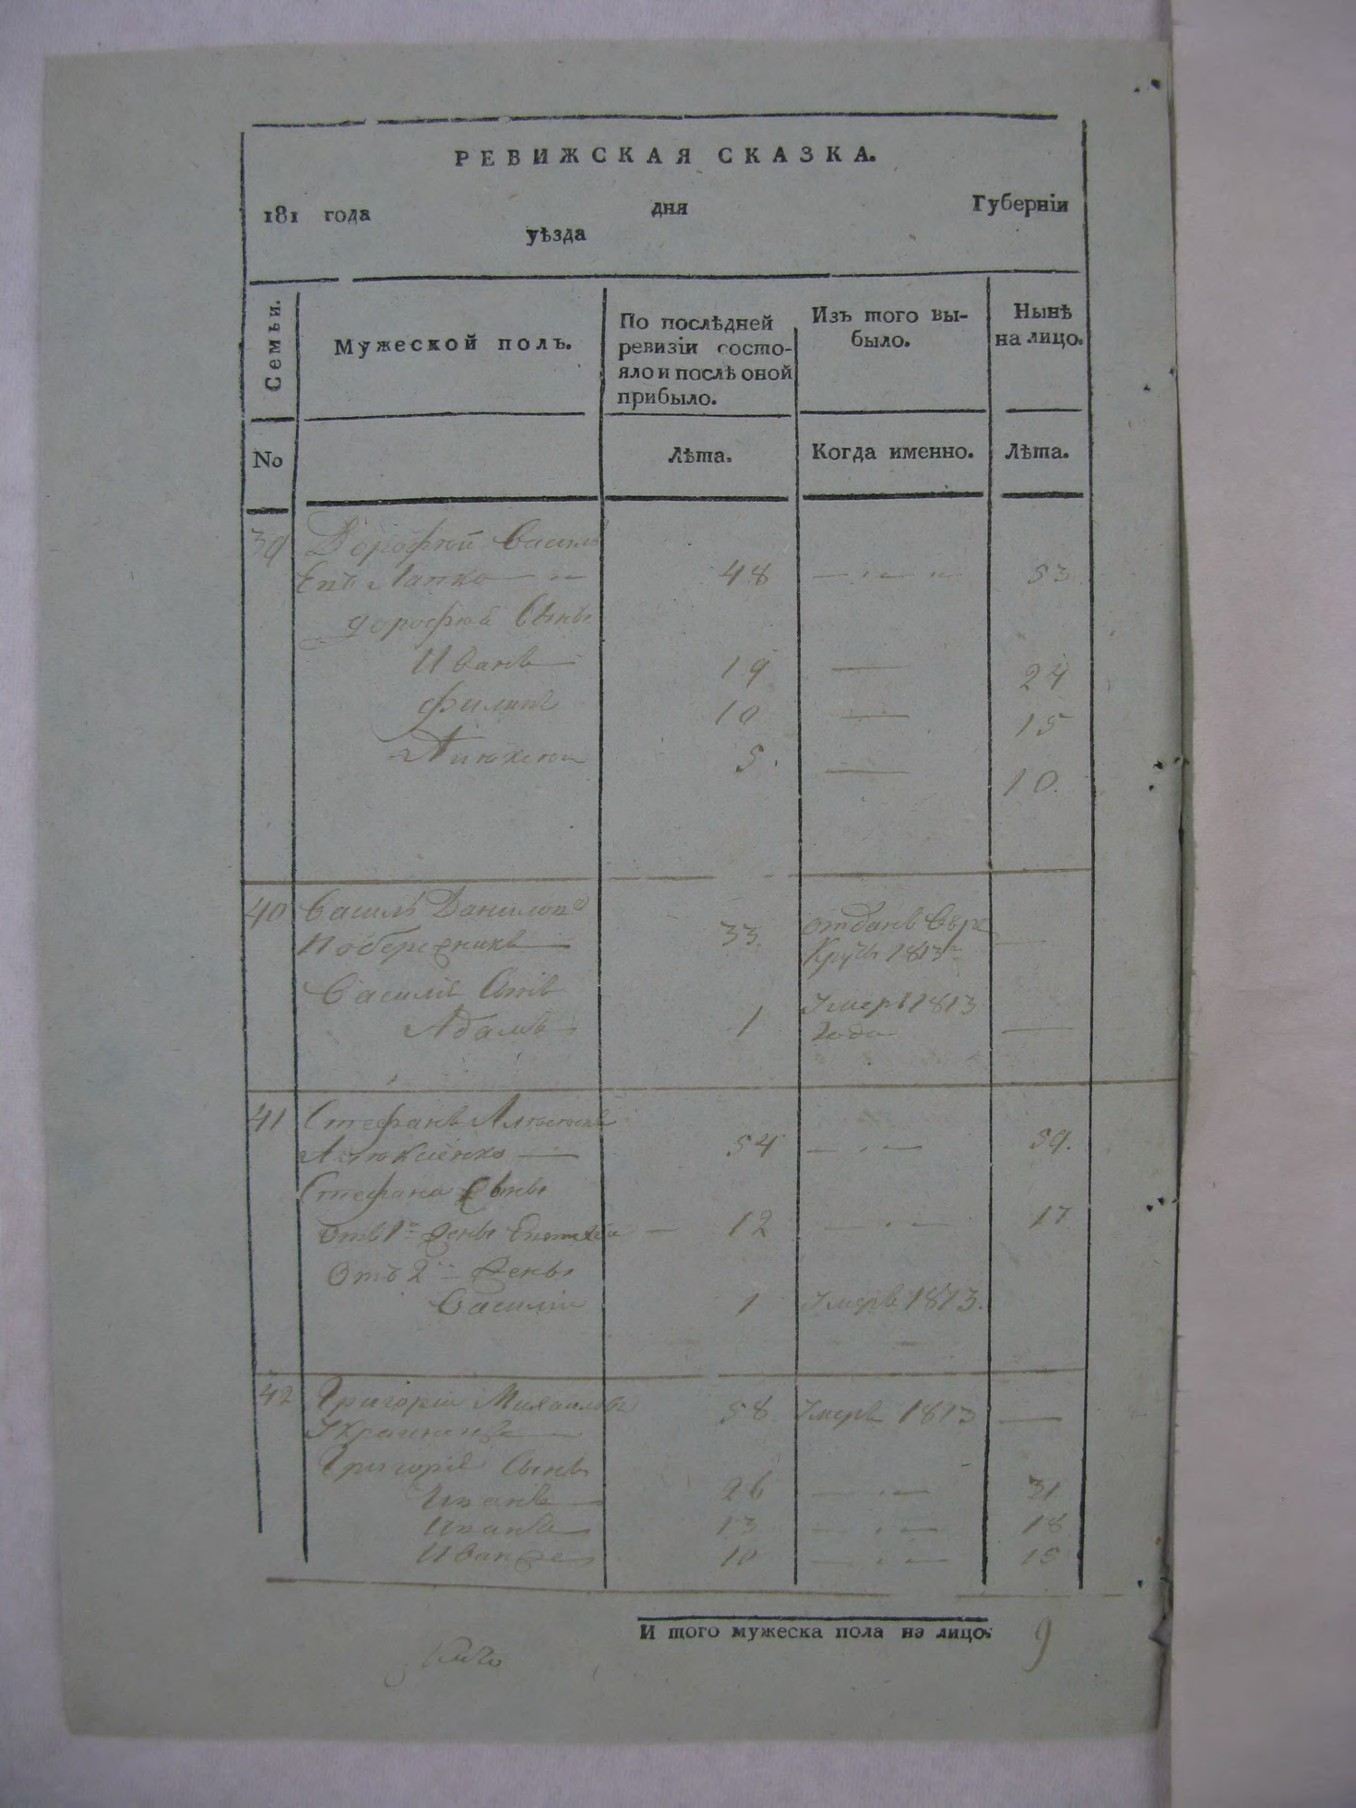 РЕВИЖСКАЯ СКАЗКА.
181 года дня Губерніи
уѣзда
Семьи.
Мужеской полъ.
По послѣдней
ревизіи состо-
яло и послѣ оной
прибыло.
Изъ того вы-
было.
Нынѣ
на лицо.
No
Лѣта.
Когда именно.
Лѣта.
39 Дорофѣй
Лапко 48 53
Дорофѣя Сыны
Иванъ 19 24
Филипъ 10 15
Алѣксѣй 5. 10.
40 Василь Даниловъ отданъ
Побережникъ 33. 1813
Василія Сынъ Умеръ 1813
Адамъ 1 года
41 Стефанъ
54 59.
Стефана Сыны
отъ 1й жены 12 17
Отъ 2й жены
Василій 1 Умеръ 1813.
42 Григорій Михайловъ 58 Умеръ 1813
Григорія Сыны
Иванъ 26 31
Иванъ 13 18
Иванъ же 10 15
И того мужеска пола на лицо. 9